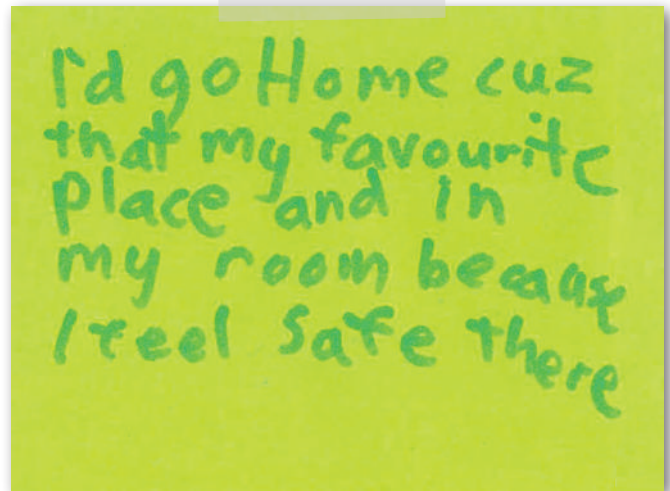 I'd go Home cuz
that my favourite
place and in
my room because
I feel safe there